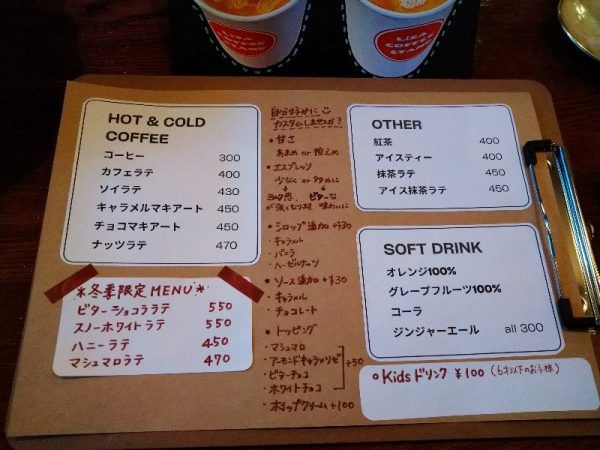 LiSA
COFFEE
STAND
LiSA
COFFEE
STAND
HOT & COLD
COFFEE
コーヒー 300
カフェラテ 400
ソイラテ 430
キャラメルマキアート 450
チョコマキアート 450
ナッツラテ 470
*冬季限定MENU*
ビターショコララテ 550
スノーホワイトラテ 550
ハニーラテ 450
マシュマロラテ 470
自分好みに
カスタムしませんか?
・甘さ
あまめ or 控えめ
・エスプレッソ
少なく or 多めに
ミルク感 ビターな
が強くなります 味わいに
・シロップ追加 +¥30
・キャラメル
・バニラ
・ヘーゼルナッツ
・ソース追加 +¥30
・キャラメル
・チョコレート
・トッピング
・マシュマロ
・アーモンドキャラメリゼ
・ビターチョコ +50
・ホワイトチョコ
・ホイップクリーム +100
OTHER
紅茶 400
アイスティー 400
抹茶ラテ 450
アイス抹茶ラテ 450
SOFT DRINK
オレンジ100%
グレープフルーツ100%
コーラ
ジンジャーエール all 300
○Kidsドリンク ¥100 (6才以下のお子様)